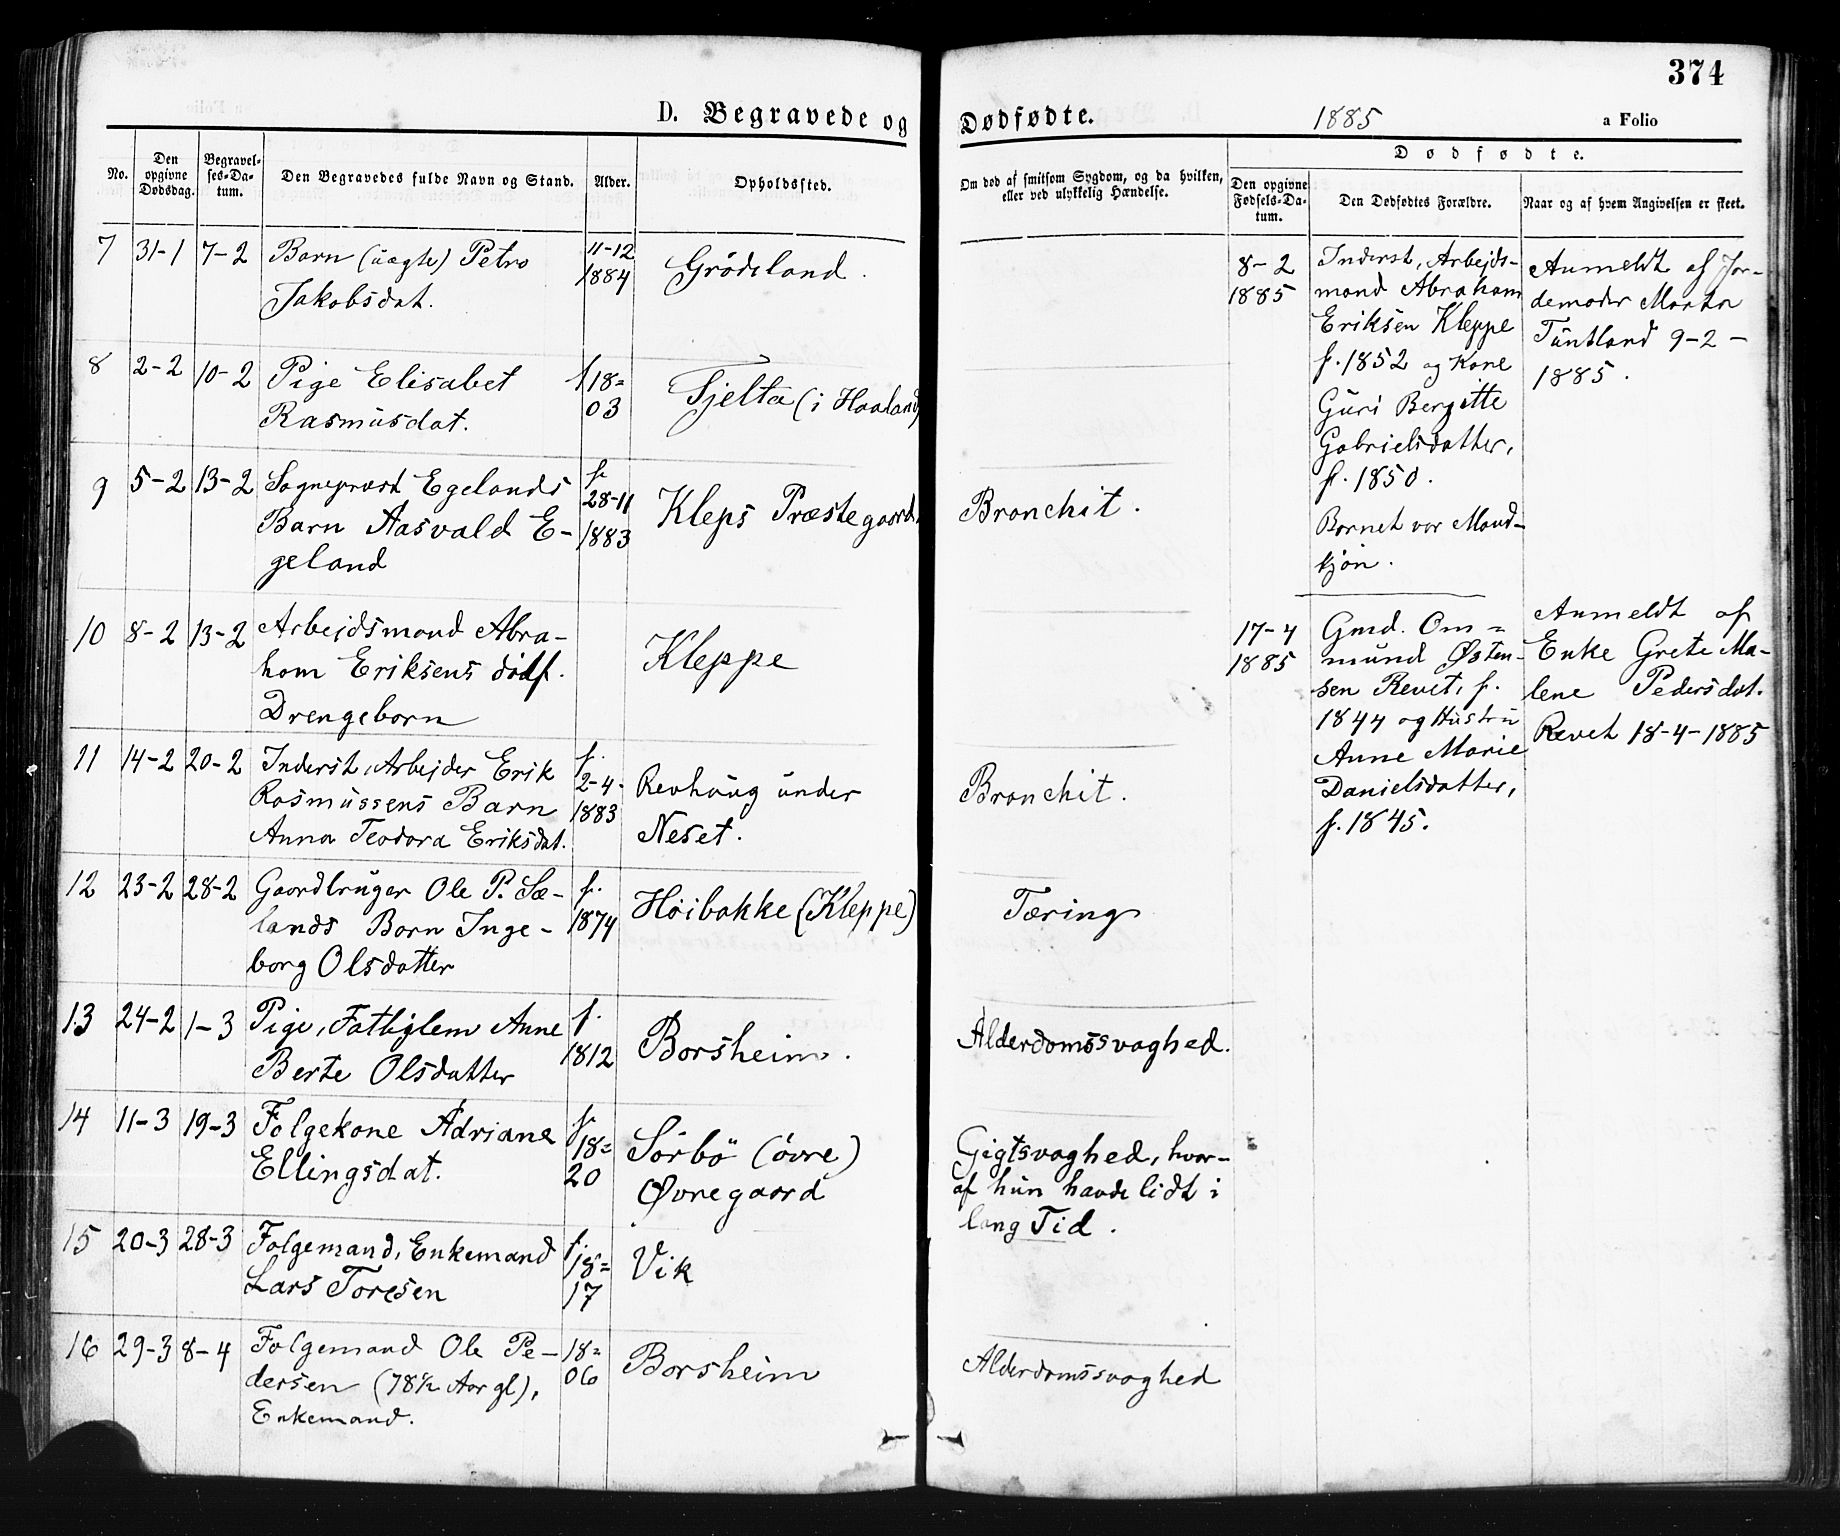 374
D. Begravede og Dødfødte. 1885 a Folio
No.
Den opgivne Dødsdag.
Begravel-
ses-Da-
tum.
Den Begravedes fulde Navn og Stand.
Alder.
Opholdssted.
Om død af smitsom Sygdom, og da hvilken,
eller ved ulykkelig Hændelse.
Dødfødte.
Den opgivne
Fødsels-Da-
tum.
Den Dødfødtes Forældre.
Naar og af hvem Angivelsen er skeet.
7 31-1 7-2 Barn (uægte) Petro 11-12 Grödeland.
Jakobsdat. 1884
8 2-2 10-2 Pige Elisabet f 18= Tjelta (i Haaland)
Rasmusdat. 03
9 5-2 13-2 Sogneprest Egelands f. Kleps Præstegaard. Bronchit.
Barn Aasvald E- 28-11
geland 1883
10 8-2 13-2 Arbejdsmand Abra- Kleppe
ham Eriksens dødf.
Drengebarn
11 14-2 20-2 Inderst, Arbejder Erik f. Revhaug under Bronchit.
Rasmussens Barn 2-4- Neset.
Anna Teodora Eriksdat. 1883
12 23-2 28-2 Gaardbruger Ole P. Sæ- f. Höibakke (Kleppe) Tæring
lands Barn Inge- 1874
borg Olsdatter
13 24-2 1-3 Pige, Fattiglem Anne f. Borsheim. Alderdomssvaghed.
Berte Olsdatter 1812
14 11-3 19-3 Folgekone Adriane f. Sörbö (övre) Gigtsvaghed, hvor-
Ellingsdat. 18= Øvregaard af hun havde lidt i
20 lang Tid.
15 20-3 28-3 Folgemand, Enkemand f. Vik
Lars Toresen 18=
17
16 29-3 8-4 Folgemand Ole Pe- 18= Borsheim Alderdomssvaghed
dersen (78½ Aar gl), 06
Enkemand.
8-2
1885
Inderst, Arbejds-
mand Abraham
Eriksen Kleppe
f. 1852 og Kone
Guri Bergitte
Gabrielsdatter,
f. 1850.
Barnet var Mand-
kjön.
Anmeldt af Jor-
demoder Marta
Tuntland 9-2-
1885.
17-4
1885
Gmd. Om=
mund Østen-
sen Revet, f.
1844 og Hustru
Anne Marie
Danielsdatter,
f. 1845.
Anmeldt af
Enke Grete Ma-
lene Pedersdat.
Revet 18-4-1885